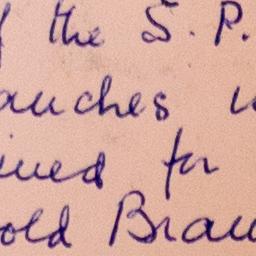 the S. P.
auches
ined for
old Brau